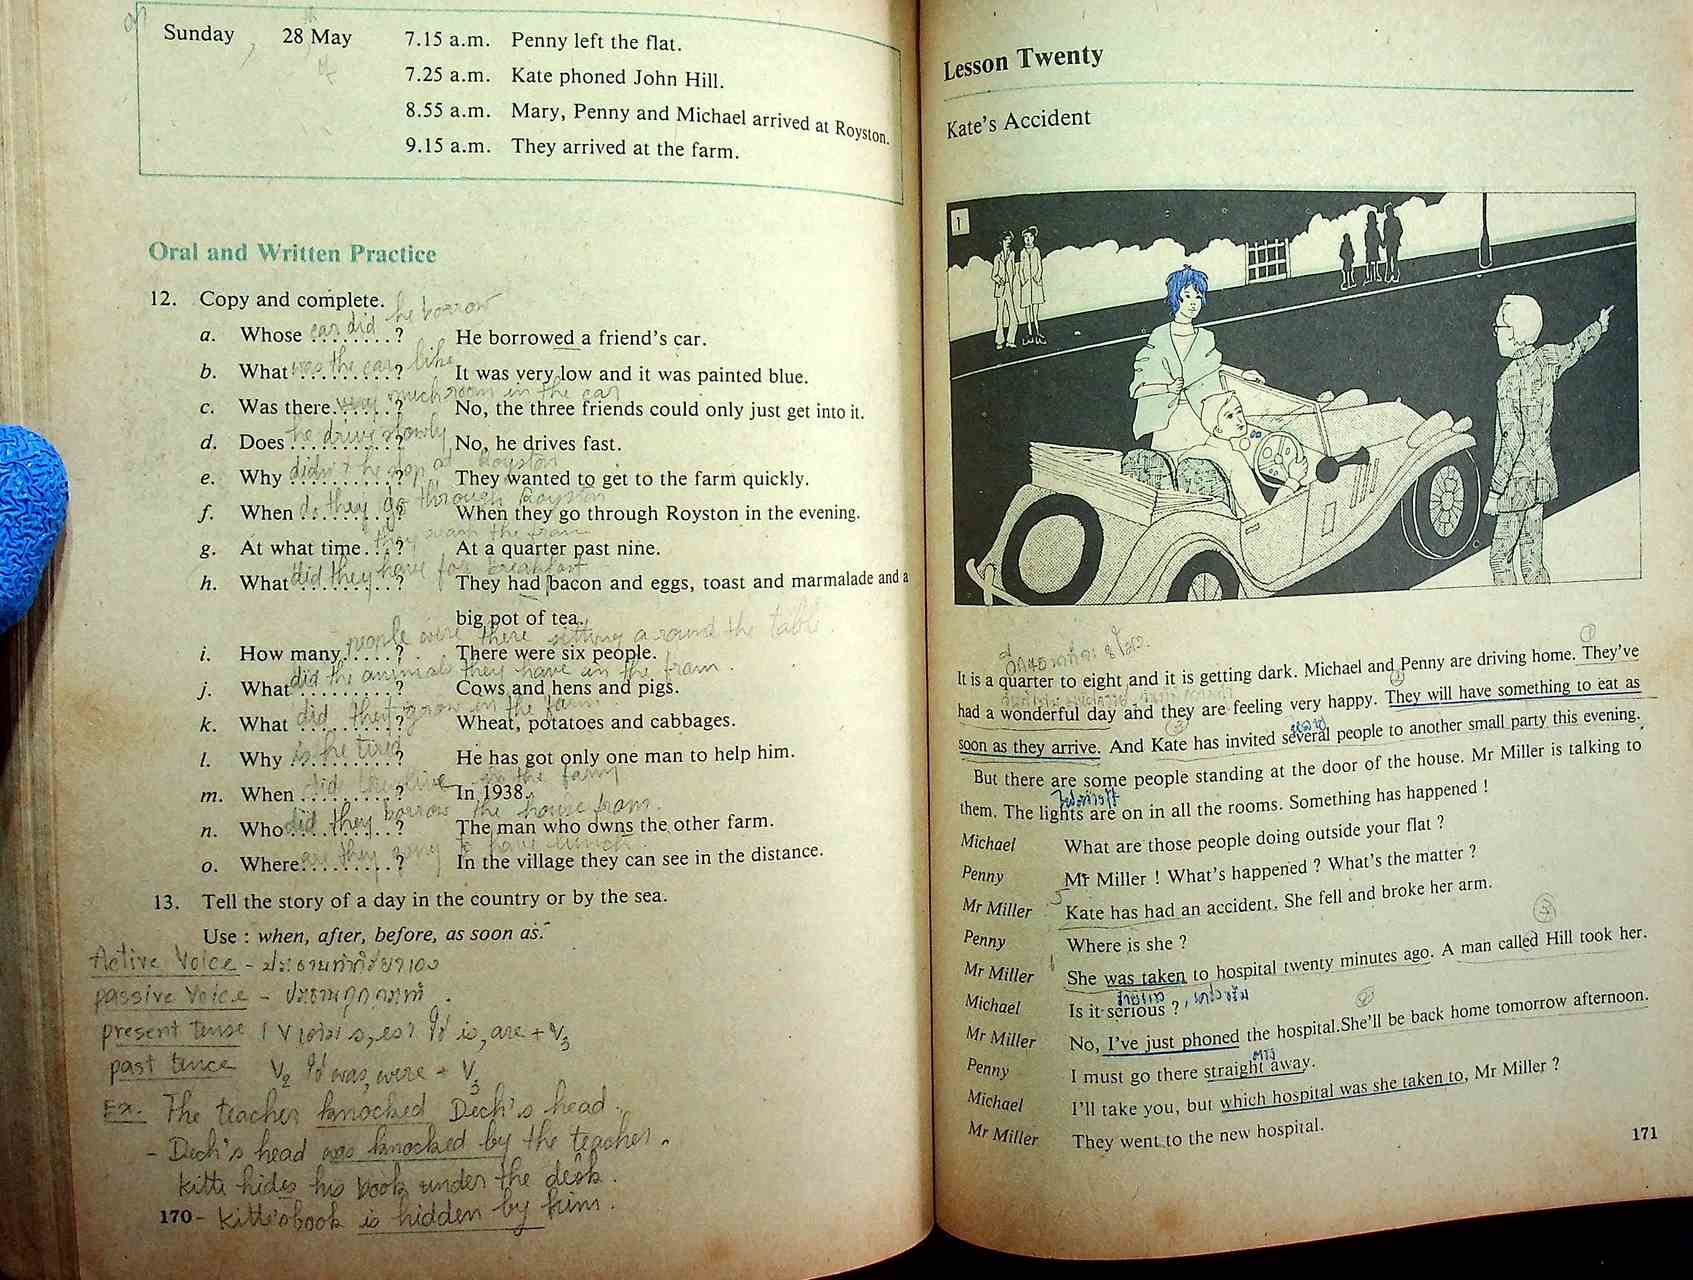 Sunday 28 May 7.15 a.m. Penny left the flat.
7.25 a.m. Kate phoned John Hill.
8.55 a.m. Mary, Penny and Michael arrived at Royston.
9.15 a.m. They arrived at the farm.
Oral and Written Practice
12. Copy and complete.
he borrow
a. Whose car did ........? He borrowed a friend's car.
b. What was the car like .........? It was very low and it was painted blue.
very much room in the car
c. Was there......? No, the three friends could only just get into it.
d. Does he drive slowly .........? No, he drives fast.
e. Why didn't he stop at Royston .........? They wanted to get to the farm quickly.
f. When do they go through Royston ........? When they go through Royston in the evening.
g. At what time....? At a quarter past nine.
h. What did they have for breakfast .........? They had bacon and eggs, toast and marmalade and a
big pot of tea.
people were there sitting around the table.
i. How many.....? There were six people.
did the animals they have in the fram.
j. What.........? Cows and hens and pigs.
did they grow in the farm
k. What .........? Wheat, potatoes and cabbages.
l. Why is he tired .........? He has got only one man to help him.
did they live in the farm
m. When .........? In 1938.
did they borrow the house from.
n. Who.........? The man who owns the other farm.
are they going to have lunch.
o. Where.........? In the village they can see in the distance.
13. Tell the story of a day in the country or by the sea.
Use : when, after, before, as soon as.
Active Voice - ประธานทำกริยาเอง
passive Voice - ประธานถูกกระทำ.
present tense V is, are + V3
past tence V2 ใช้ was, were + V3
Ex. The teacher knocked Dech's head.
- Dech's head was knocked by the teacher.
Kitti hides his book under the desk.
170 - Kitti's book is hidden by him.
Lesson Twenty
Kate's Accident
1
It is a quarter to eight and it is getting dark. Michael and Penny are driving home. They've
had a wonderful day and they are feeling very happy. They will have something to eat as
soon as they arrive. And Kate has invited several people to another small party this evening.
But there are some people standing at the door of the house. Mr Miller is talking to
them. The lights are on in all the rooms. Something has happened !
Michael What are those people doing outside your flat ?
Penny Mr Miller ! What's happened ? What's the matter ?
Mr Miller Kate has had an accident. She fell and broke her arm.
Penny Where is she ?
Mr Miller She was taken to hospital twenty minutes ago. A man called Hill took her.
Michael Is it serious ?
Mr Miller No, I've just phoned the hospital.She'll be back home tomorrow afternoon.
ตรง
Penny I must go there straight away.
Michael I'll take you, but which hospital was she taken to, Mr Miller ?
Mr Miller They went to the new hospital.
171